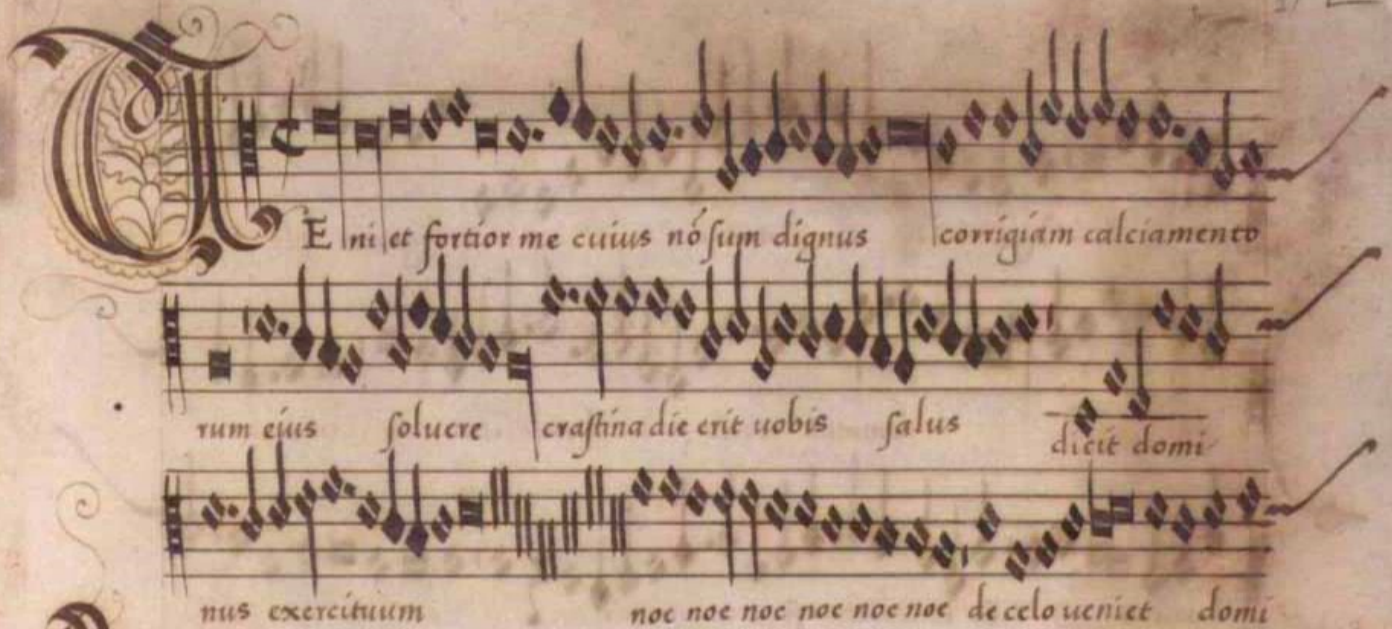 VEni et fortior me cuius nō sum dignus corrigiam calciamento
rum eius soluere crastina die erit uobis salus dicit domi
nus exercituum noe noe noe noe noe noe de celo ueniet domi